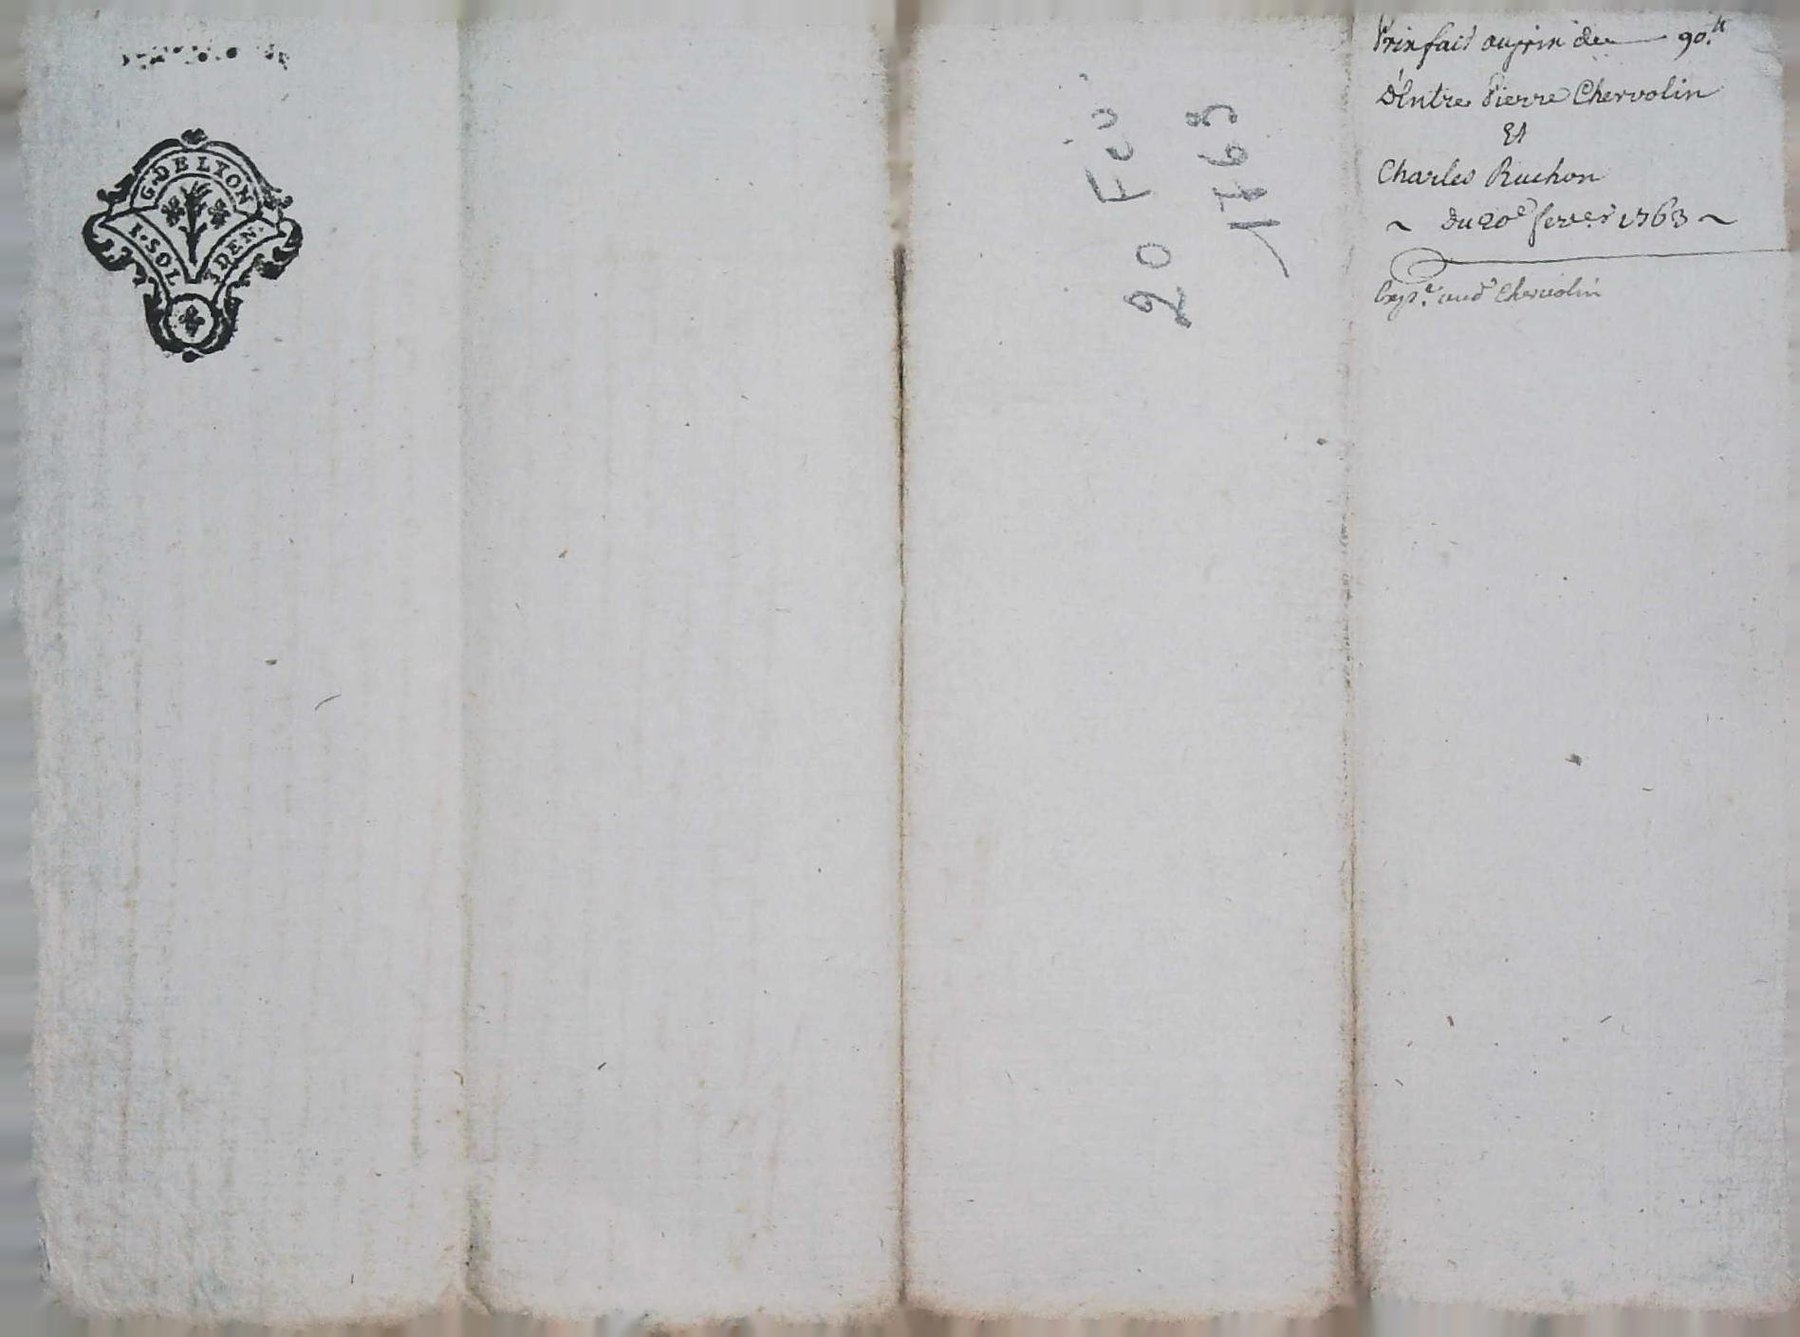 G. DE LYON
1. SOL 3 DEN.
20 Fev
1763
Prixfait au prix de — 90.lt
D'Entre Pierre Chervolin
Et
Charles Ruchon
~ du 20e fevrer 1763 ~
aud Chervolin